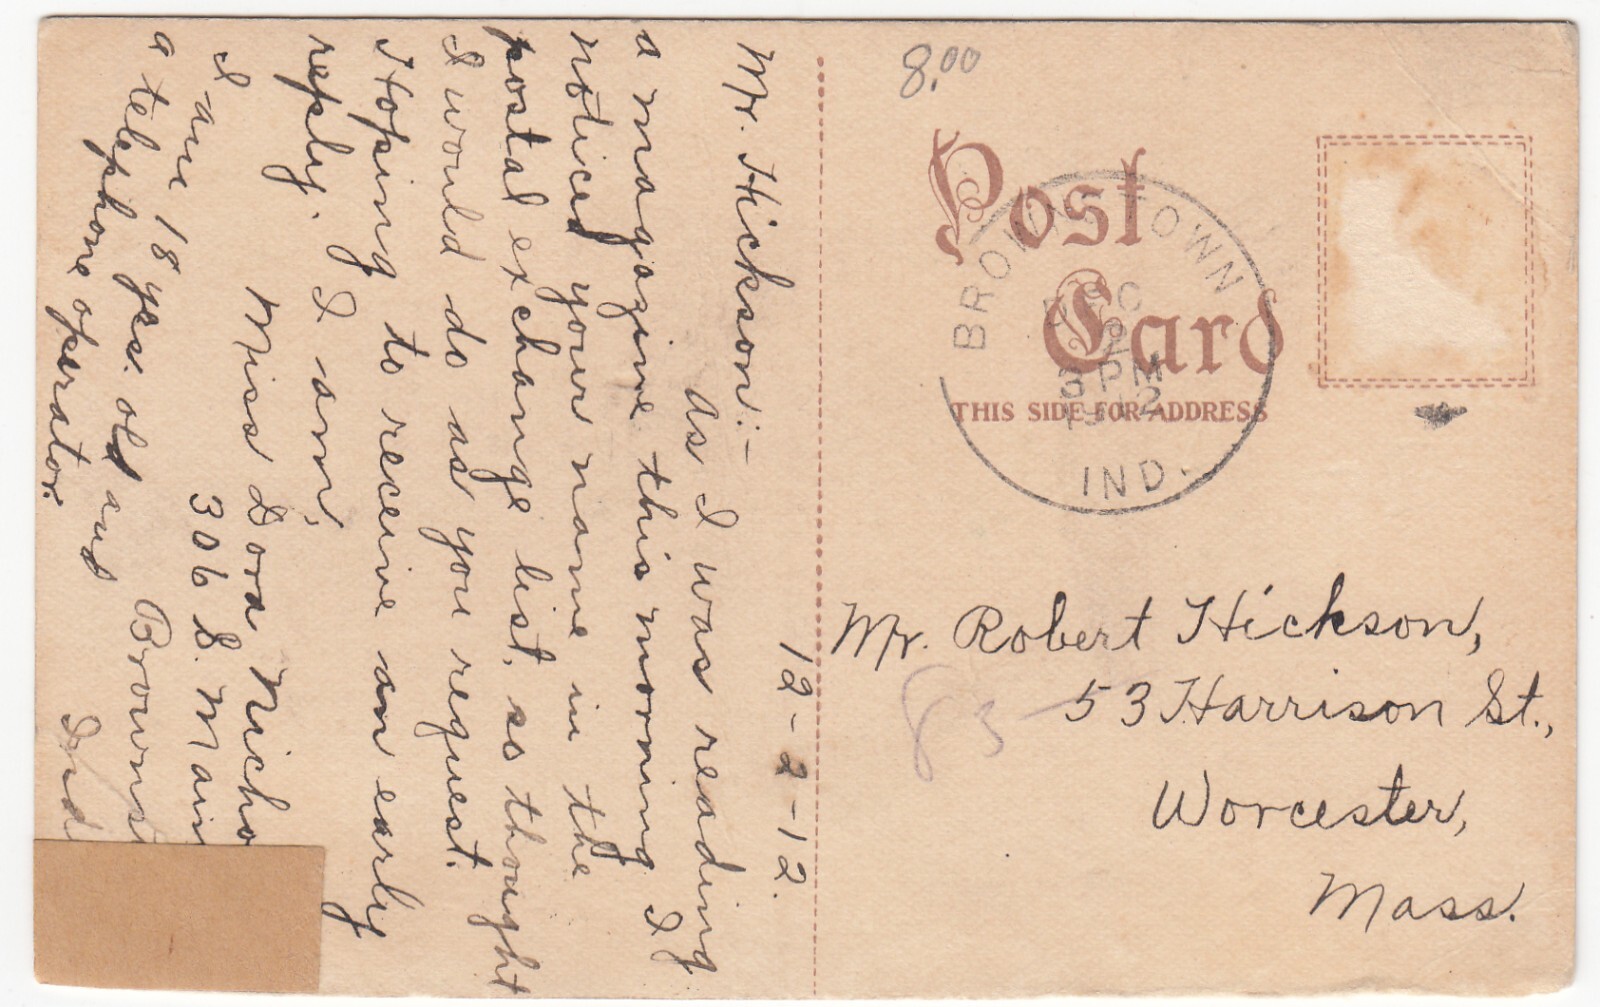 12-2-12.
Mr. Hickson:-
As I was reading
a magazine this morning I
noticed your name in the
postal exchange list, so thought
I would do as you request.
Hoping to receive an early
reply, I am,
Miss Dora Nicho
306 S. Main
Browns
Ind
I am 18 yrs. old and
a telephone operator.
8.00
Post
Card
THIS SIDE FOR ADDRESS
BROWNSTOWN
DEC
2
3 PM
1912
IND.
Mr. Robert Hickson,
83
53 Harrison St.,
Worcester,
Mass.